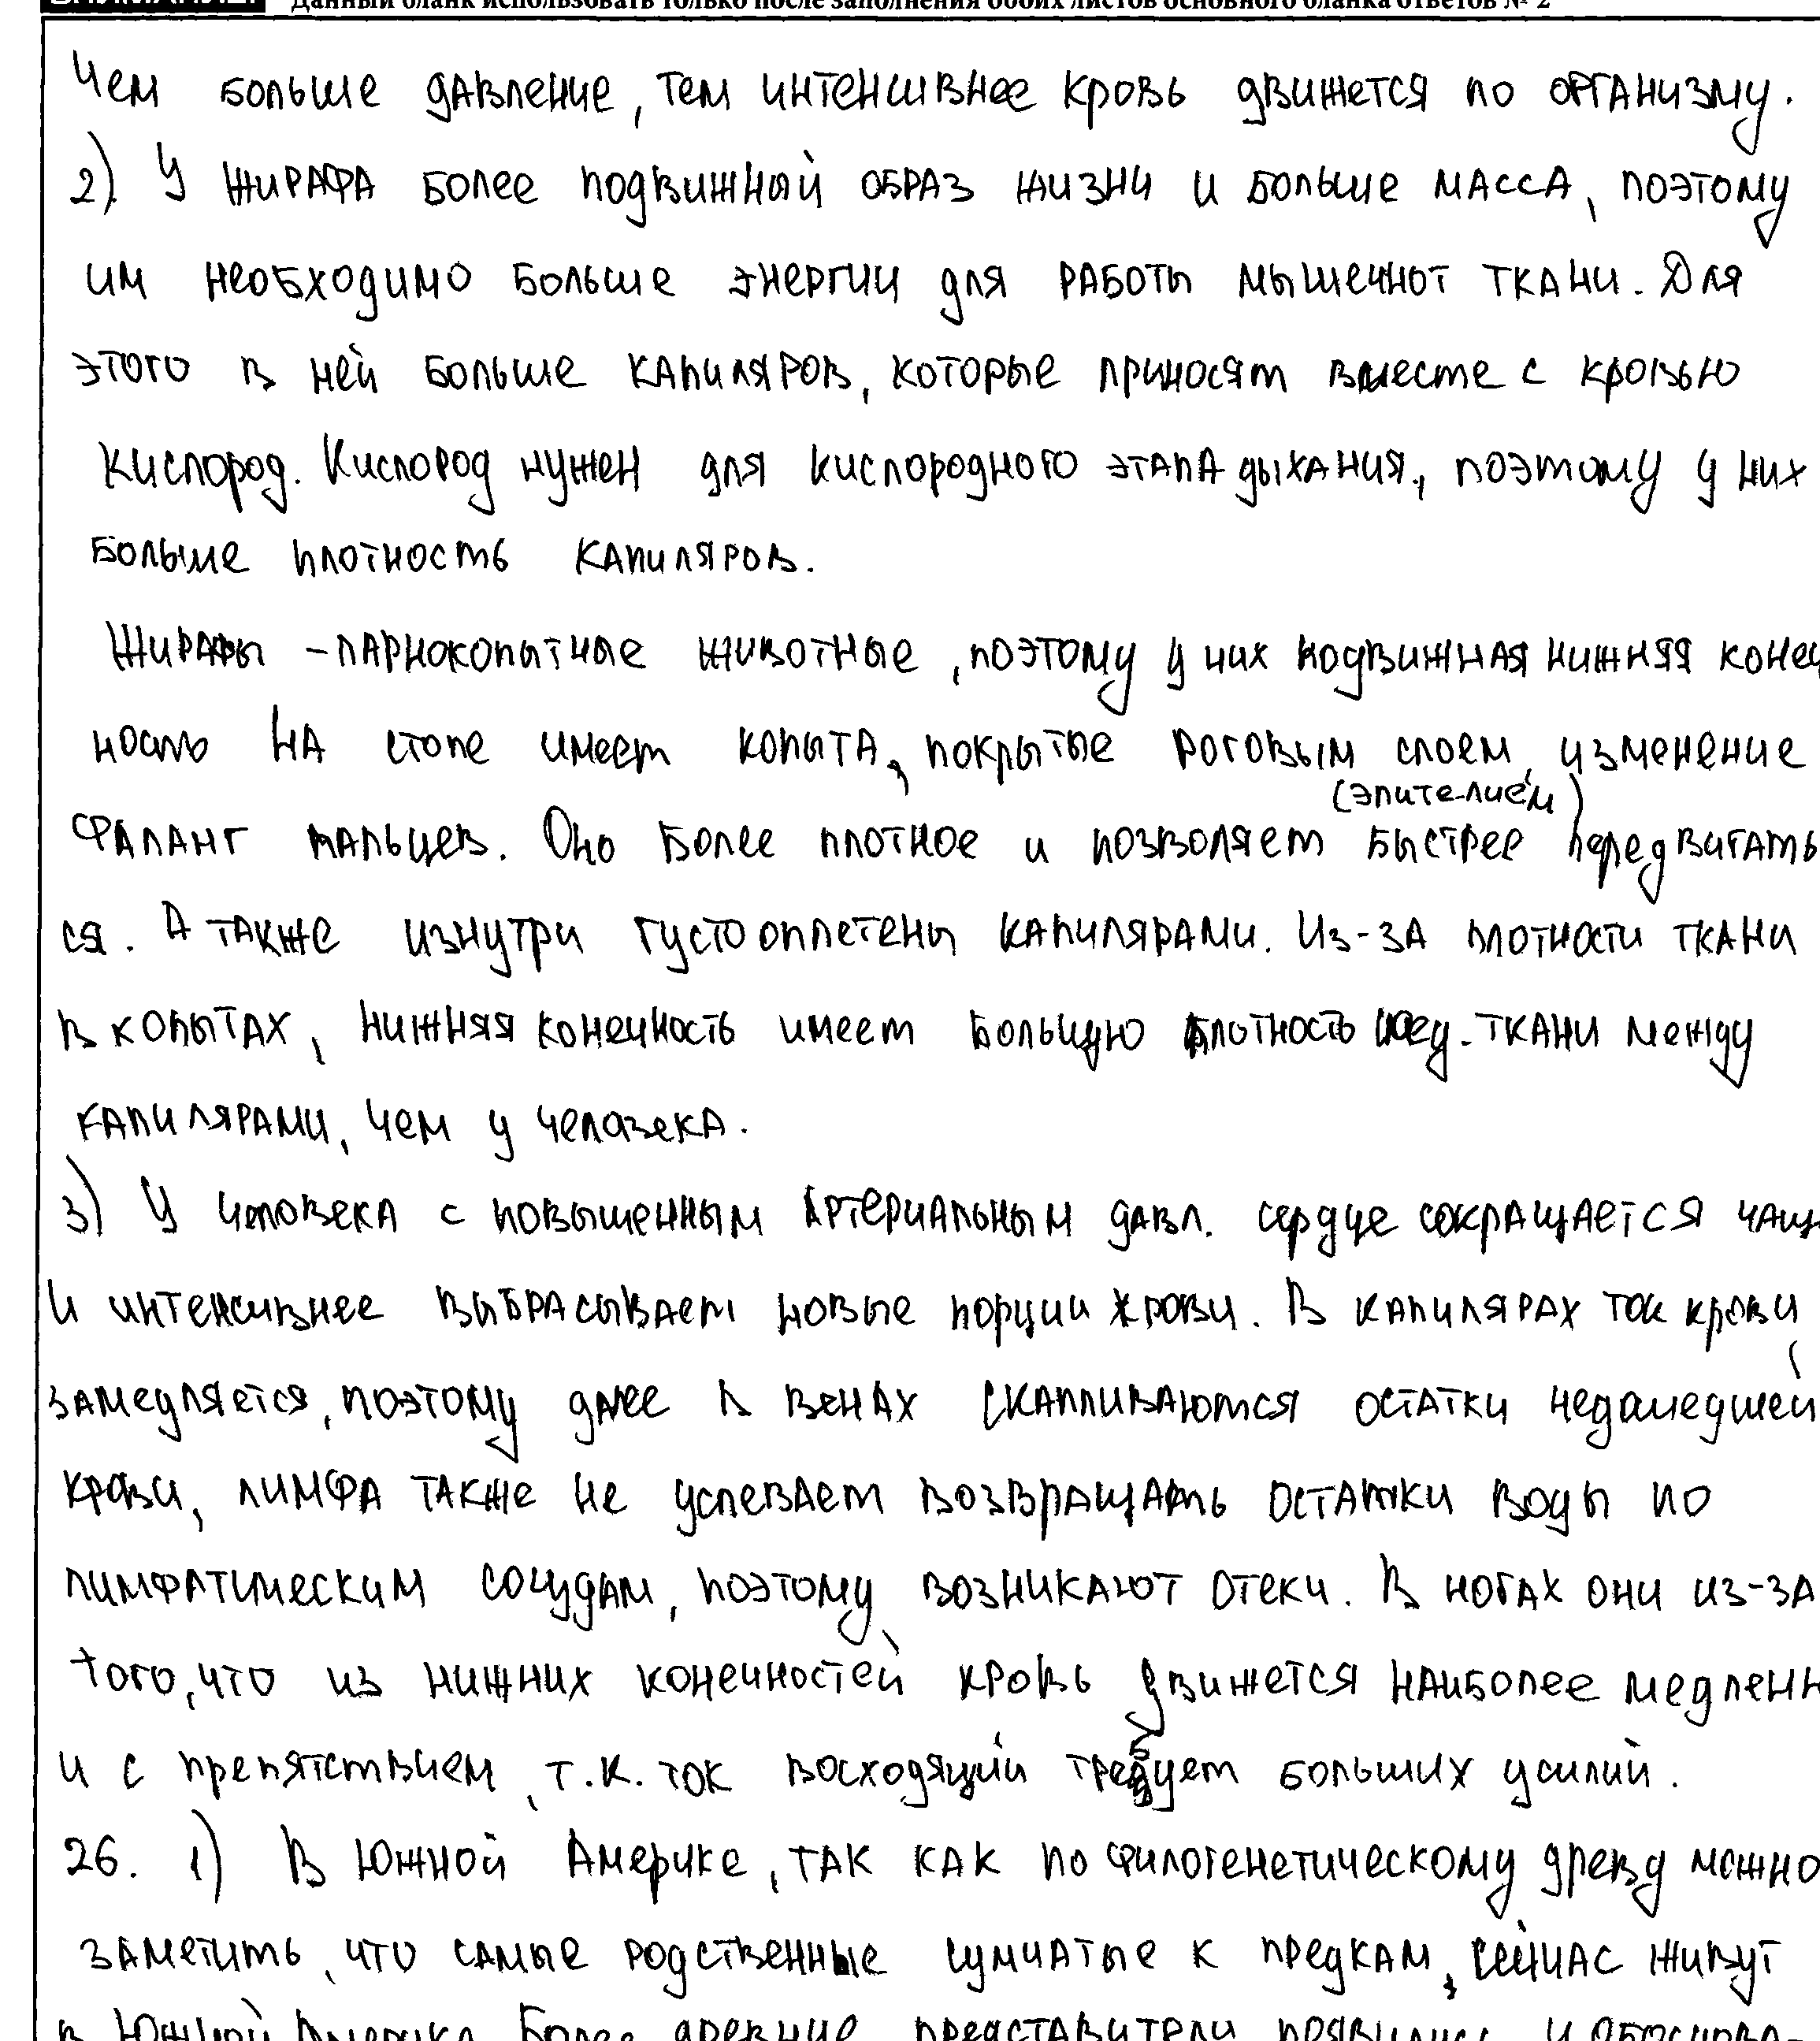 Данный бланк использовать только после заполнения обоих листов основного бланка ответов № 2
Чем больше давление, тем интенсивнее кровь движется по организму.
2) У жирафа более подвижный образ жизни и больше масса, поэтому
им необходимо больше энергии для работы мышечнот ткани. Для
этого в ней больше капиляров, которые приносят вместе с кровью
кислород. Кислород нужен для кислородного этапа дыхания, поэтому у них
больше плотность капиляров.
Жирафы - парнокопытные животные, поэтому у них подвижная нижняя конеч
ность на стопе имеет копыта, покрытые роговым слоем, изменение
(эпителием)
фаланг пальцев. Оно более плотное и позволяет быстрее передвигать
ся. А также изнутри густо оплетены капилярами. Из-за плотности ткани
в копытах, нижняя конечность имеет большую плотность соед. ткани между
капилярами, чем у человека.
3) У человека с повышенным артериальным давл. сердце сокращается чаще
и интенсивнее выбрасывает новые порции крови. В капилярах ток крови
замедляется, поэтому далее в венах скапливаются остатки недошедшей
крови, лимфа также не успевает возвращать остатки воды по
лимфатическим сосудам, поэтому возникают отеки. В ногах они из-за
того, что из нижних конечностей кровь движется наиболее медленн
и с препятствием, т.к. ток восходящий требует больших усилий.
26. 1) В Южной Америке, так как по филогенетическому древу можно
заметить, что самые родственные сумчатые к предкам, сейчас живут
в Южной Америке. Более древние представители появились и обоснова-